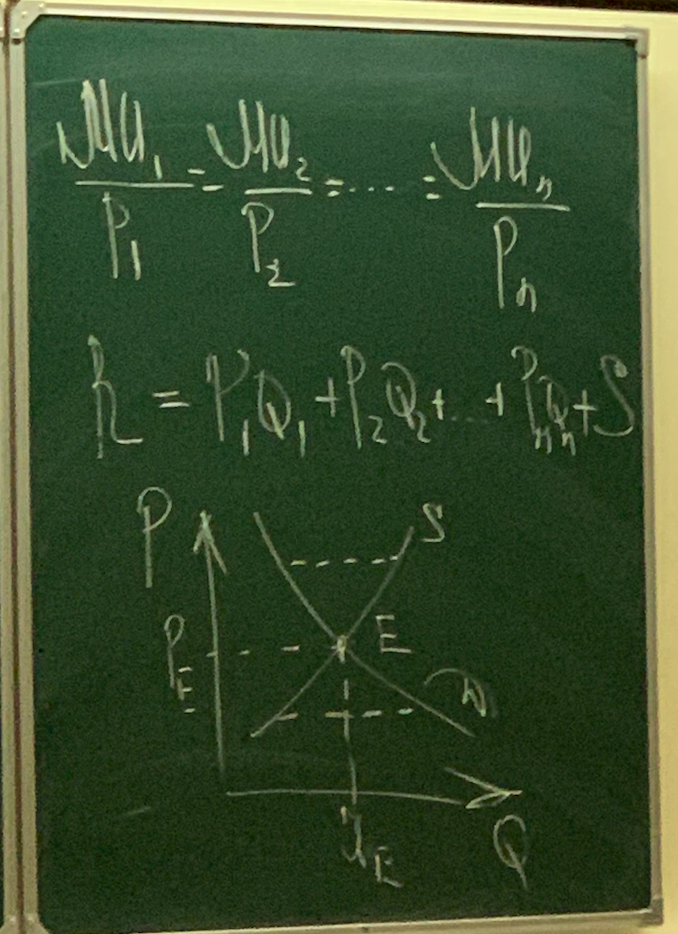 MU₁/P₁ = MU₂/P₂ = .... = MUₙ/Pₙ
R = P₁Q₁ + P₂Q₂ + ... + PₙQₙ + S
P
S
P_E
E
D
Q_E
Q